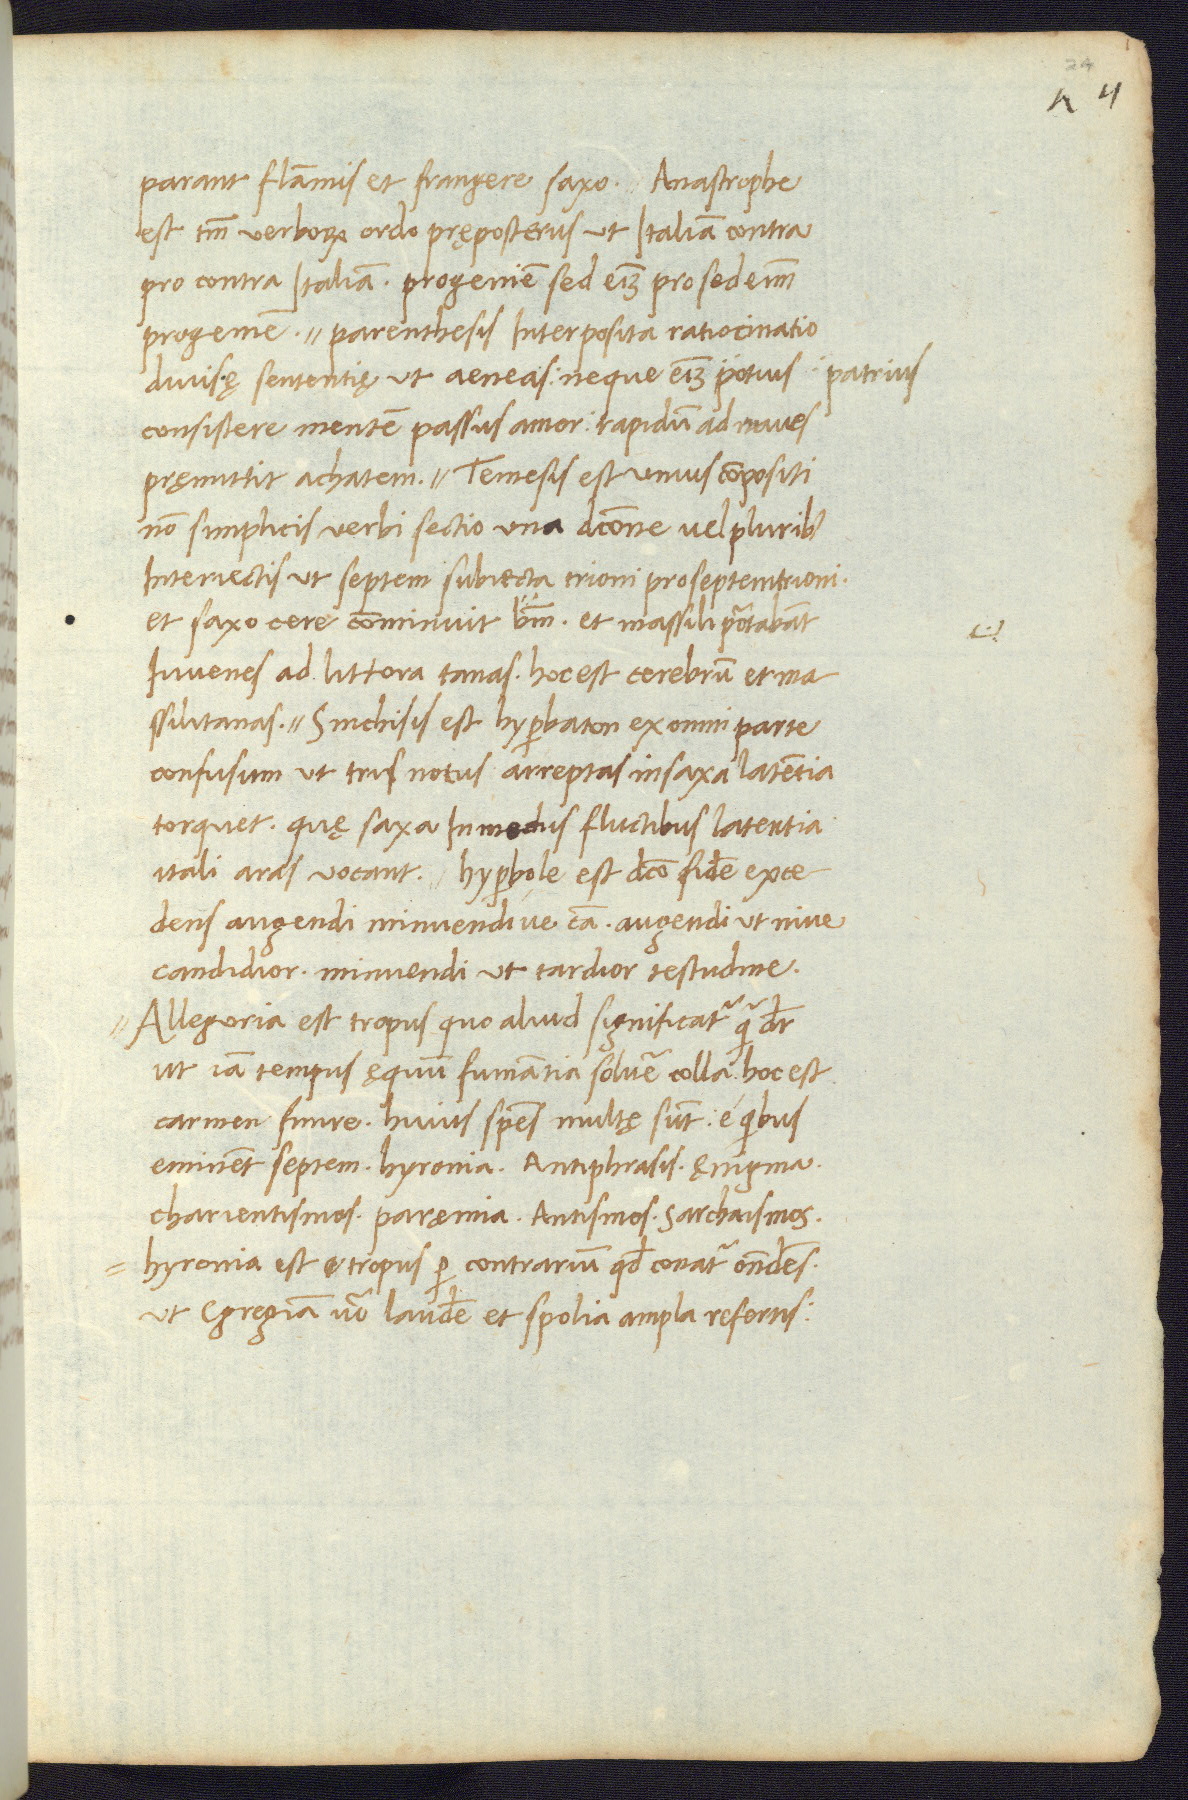 24
4
parant flam̄is et frangere saxo. Anastrophe
est tm̄ verboꝝ ordo pręposterus ut Italiā contra
pro contra Italiā. progeniē sed eīꝫ pro sed enīm
progeniē. // parenthesis Interposita ratiocinatio
diuisę sententię ut aeneas: neque eīꝫ potius patrius
consistere mentē passus amor: rapidū ad naues
pręmittit achatem. // Temesis est unius cōpositi
nō simplicis verbi sectio una dictōne uel pluribꝰ
Interiectis ut septem subiecta trioni pro septemtrioni.
et saxo cere cōminuit brm̄. et massili portabāt
Iuuenes ad littora tanas. hoc est cerebrū et ma
ssilitanas. // Sinchisis est hyꝑbaton ex omni parte
confusum ut tris notus arreptas in saxa latētia
torquet. quę saxa In medijs fluctibus latentia
itali aras vocant. // hyꝑbole est dc̄o fidē exce
dens augendi minuendiue cā. augendi ut niue
candidior. minuendi ut tardior testudine.
// Allegoria est tropus quo aliud significat᷑ q̄ dr̄
ut iā tempus ęquū fumātia soluē colla. hoc est
carmen finire. huius spēs multę sūt. é quibus
eminēt septem. hyronia. Antiphrasis. ęnigma.
charientismos. paręmia. Antismos. sarchaismos.
= hyronia est tropus ꝑ contrariū qd̄ conat᷑ on̄dēs.
ut Egregiā ūo laudē et spolia ampla refertis: